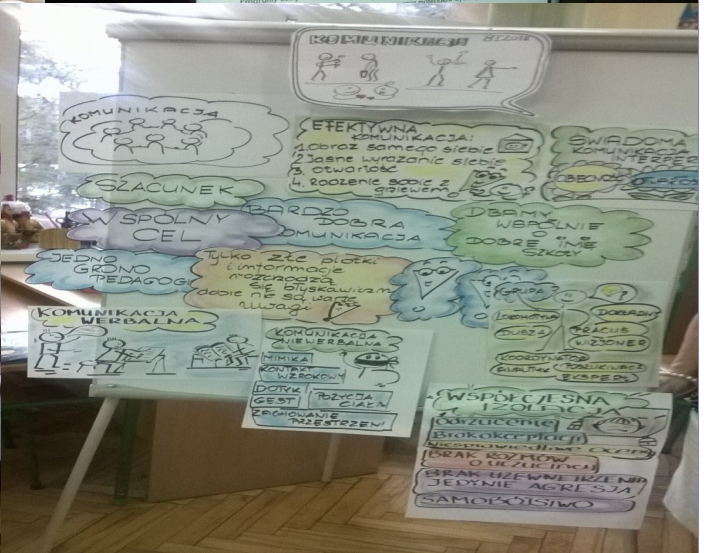 KOMUNIKACJA
KOMUNIKACJA
EFEKTYWNA
KOMUNIKACJA:
1. Obraz samego siebie
2. Jasne wyrażanie siebie
3. otwartość
4. Radzenie sobie z
gniewem
ŚWIADOMA
KOMUNIKACJA
INTERPER
SZACUNEK
WSPÓLNY
CEL
BARDZO
DOBRA
KOMUNIKACJA
DBAMY
WSPÓLNIE
O
DOBRE IMIĘ
SZKOŁY
JEDNO
GRONO
PEDAGOGI
Tylko złe plotki
i informacje
rozchodzą
się błyskawicznie
dobre nie są warte
uwagi
GRUPA
DUSZA
WIZJONER
KOORDYNATOR
EKSPERT
KOMUNIKACJA
WERBALNA
KOMUNIKACJA
NIEWERBALNA
MIMIKA
KONTAKT
WZROKOWY
DOTYK
GEST
POZYCJA
CIAŁA
ZACHOWANIE
PRZESTRZENI
WSPÓŁCZESNA
IZOLACJA
odrzucenie
Brak akceptacji
BRAK ROZMÓW
O UCZUCIACH
JEDYNIE AGRESJA
SAMOBÓJSTWO